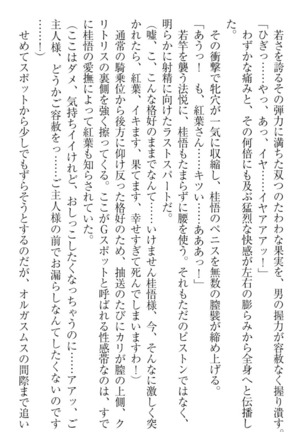 若さを誇るその弾力に満ちた双つのたわわな果実を、男の握力が容赦なく握り潰す。
「ひぎっ……やっ、あっ、イヤ……イヤアアアッ！」
わずかな痛みと、その何倍にも及ぶ猛烈な快感が左右の膨らみから全身へと伝播し
た。
その衝撃で牝穴が一気に収縮し、桂悟のペニスを無数の膣襞が締め上げる。
「あうっ！　も、紅葉さん……キツい……あああっ！」
若竿を襲う法悦に、桂悟もたまらずに腰を使う。それもただのピストンではなく、
明らかに射精に向けたラストスパートだ。
（嘘、こ、こんな格好のままでなんて……いけません桂悟様、今、そんなに激しく突
かれたら、紅葉、イキます、果てます、幸せすぎて死んでしまいますわ！）
通常の騎乗位から後方に仰け反った格好のため、抽送のたびにカリが膣の上側、ク
リトリスの裏側を強く擦ってくる。ここがGスポットと呼ばれる性感帯なのは、すで
に桂悟の愛撫によって紅葉も知らされていた。
（ここはダメ、気持ちイイけれど、おしっこしたくなっちゃうのに……アアッ、ご
主人様、どうかご容赦をっ……ご主人様の前でお漏らしなんてしたくないのです
……！）
せめてスポットから少しでもずらそうとするのだが、オルガスムスの間際まで追い